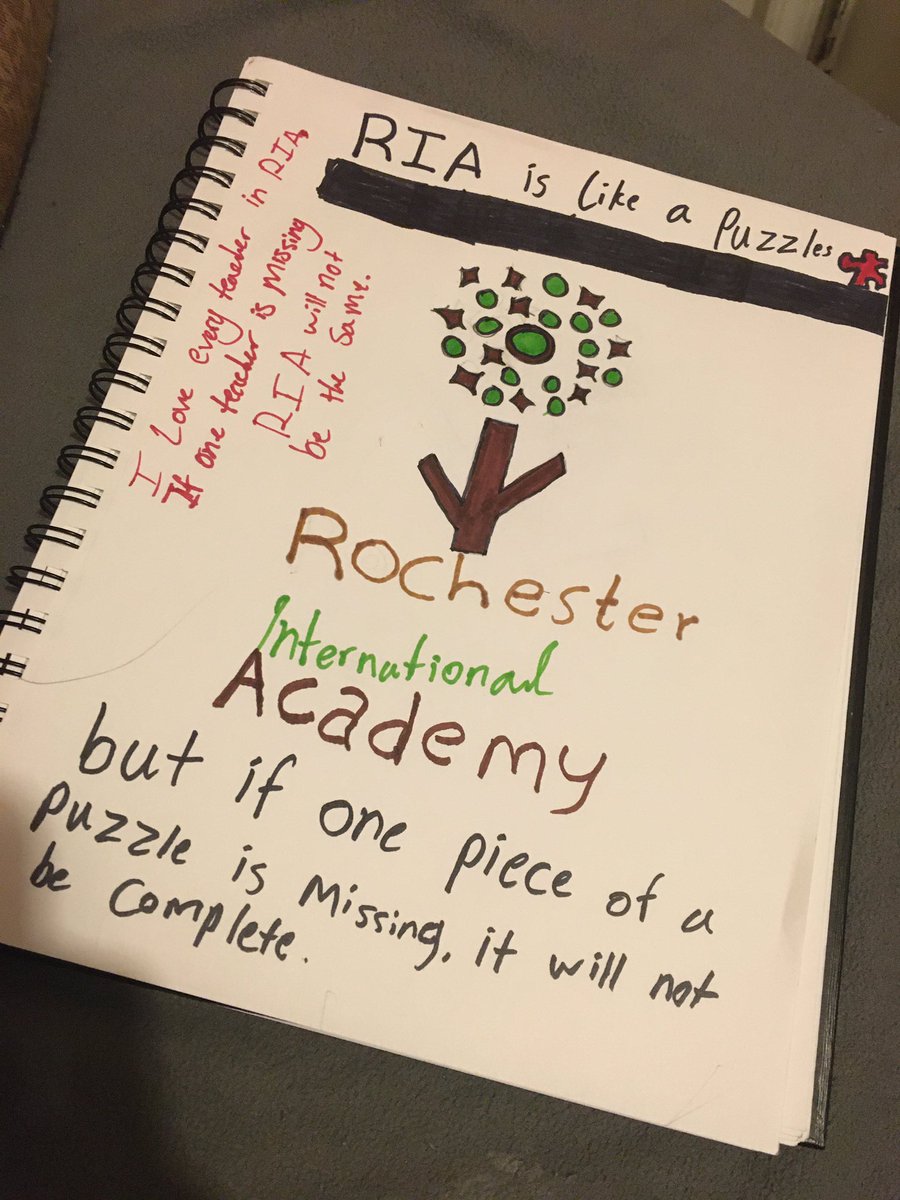 RIA is like a Puzzles
I Love every teacher in RIA,
If one teacher is missing
RIA will not
be the same.
Rochester
International
Academy
but if one piece of a
Puzzle is missing, it will not
be complete.